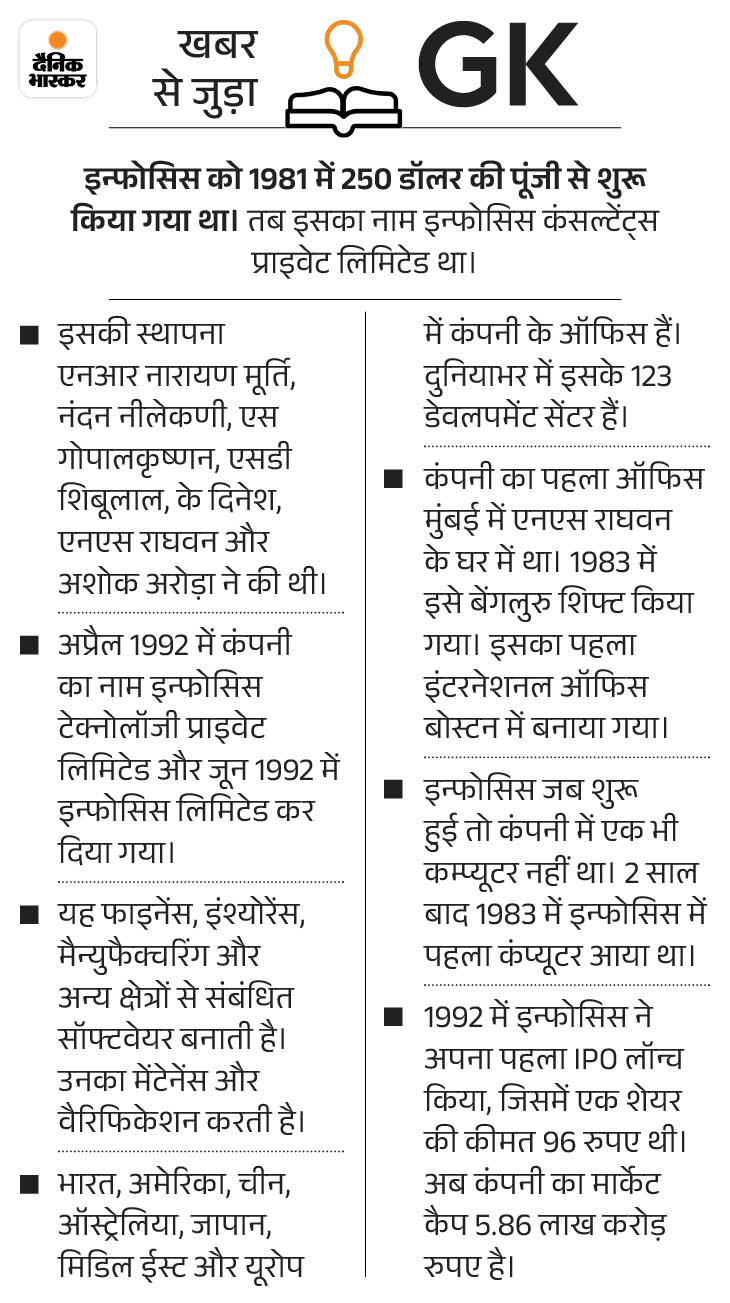 दैनिक
भास्कर
खबर
से जुड़ा
GK
इन्फोसिस को 1981 में 250 डॉलर की पूंजी से शुरू
किया गया था। तब इसका नाम इन्फोसिस कंसल्टेंट्स
प्राइवेट लिमिटेड था।
इसकी स्थापना
एनआर नारायण मूर्ति,
नंदन नीलेकणी, एस
गोपालकृष्णन, एसडी
शिबूलाल, के दिनेश,
एनएस राघवन और
अशोक अरोड़ा ने की थी।
अप्रैल 1992 में कंपनी
का नाम इन्फोसिस
टेक्नोलॉजी प्राइवेट
लिमिटेड और जून 1992 में
इन्फोसिस लिमिटेड कर
दिया गया।
यह फाइनेंस, इंश्योरेंस,
मैन्युफैक्चरिंग और
अन्य क्षेत्रों से संबंधित
सॉफ्टवेयर बनाती है।
उनका मेंटेनेंस और
वैरिफिकेशन करती है।
भारत, अमेरिका, चीन,
ऑस्ट्रेलिया, जापान,
मिडिल ईस्ट और यूरोप
में कंपनी के ऑफिस हैं।
दुनियाभर में इसके 123
डेवलपमेंट सेंटर हैं।
कंपनी का पहला ऑफिस
मुंबई में एनएस राघवन
के घर में था। 1983 में
इसे बेंगलुरु शिफ्ट किया
गया। इसका पहला
इंटरनेशनल ऑफिस
बोस्टन में बनाया गया।
इन्फोसिस जब शुरू
हुई तो कंपनी में एक भी
कम्प्यूटर नहीं था। 2 साल
बाद 1983 में इन्फोसिस में
पहला कंप्यूटर आया था।
1992 में इन्फोसिस ने
अपना पहला IPO लॉन्च
किया, जिसमें एक शेयर
की कीमत 96 रुपए थी।
अब कंपनी का मार्केट
कैप 5.86 लाख करोड़
रुपए है।